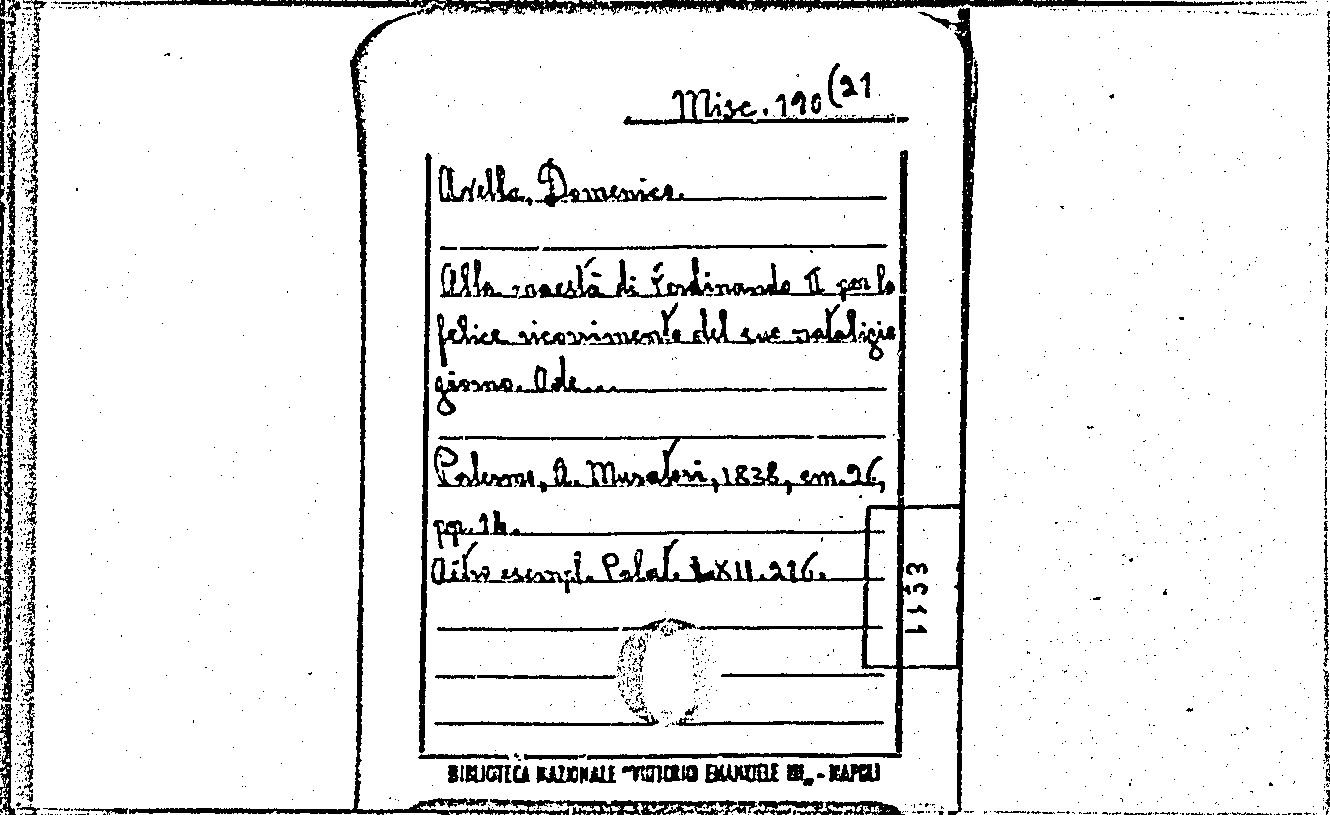 Misc. 190 (21
Avella, Domenico.
Alla maestà di Ferdinando II per lo
felice ricorrimento del suo natalizio
giorno. Ode....
Palermo, A. Muratori, 1838, cm. 26,
pp. 14.
Altro esempl. Palat. LXII. 216.
BIBLIOTECA NAZIONALE "VITTORIO EMANUELE III" - NAPOLI